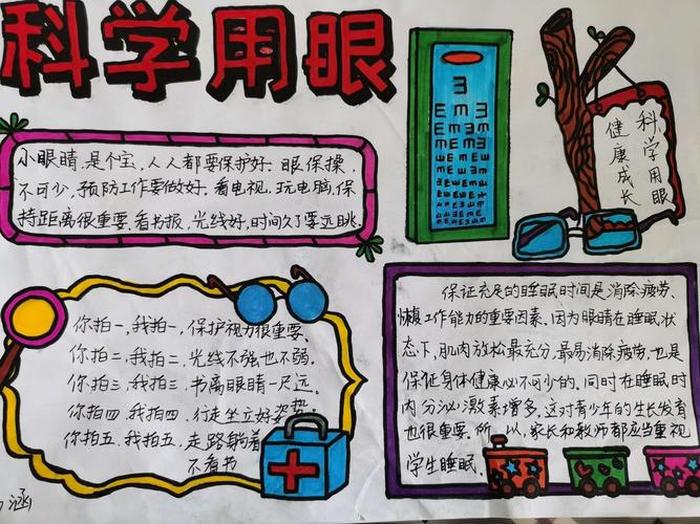 科学用眼
小眼睛,是个宝,人人都要保护好.眼保操,
不可少,预防工作要做好.看电视,玩电脑,保
持距离很重要.看书报,光线好,时间久了要远眺.
科学用眼
健康成长
你拍一,我拍一,保护视力很重要.
你拍二,我拍二,光线不强也不弱.
你拍三,我拍三,书离眼睛一尺远.
你拍四,我拍四,行走坐立好姿势.
你拍五,我拍五,走路躺着
不看书
保证充足的睡眠时间是消除疲劳、
恢复工作能力的重要因素.因为眼睛在睡眠状
态下,肌肉放松最充分,最易消除疲劳,也是
保证身体健康必不可少的.同时在睡眠时
内分泌激素增多.这对青少年的生长发育
也很重要.所以,家长和教师都应当重视
学生睡眠.
涵